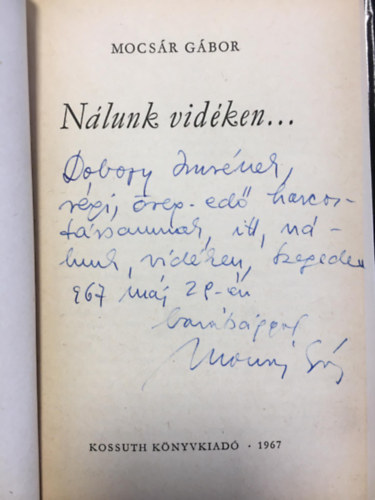 MOCSÁR GÁBOR
Nálunk vidéken...
Dobozy Imrének,
régi, öreg-edő harcos-
társamnak, itt, ná-
lunk, vidéken, Szegeden
967 máj 29-én
barátsággal
Mocsár Gáb
KOSSUTH KÖNYVKIADÓ · 1967